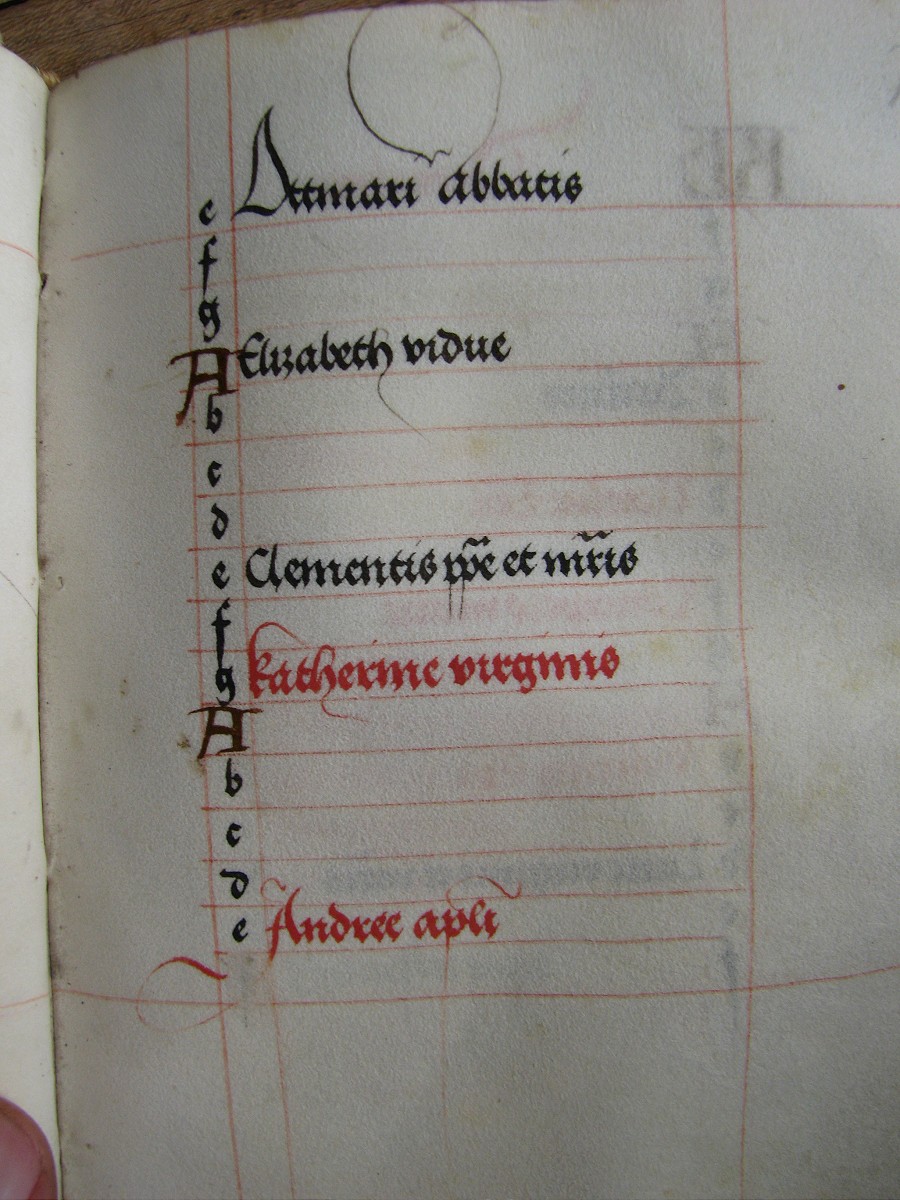 e Ottmari abbatis
f
g
A Elizabeth vidue
b
c
d
e Clementis ppe et mris
f
g katherine virginis
A
b
c
d
e Andree apli